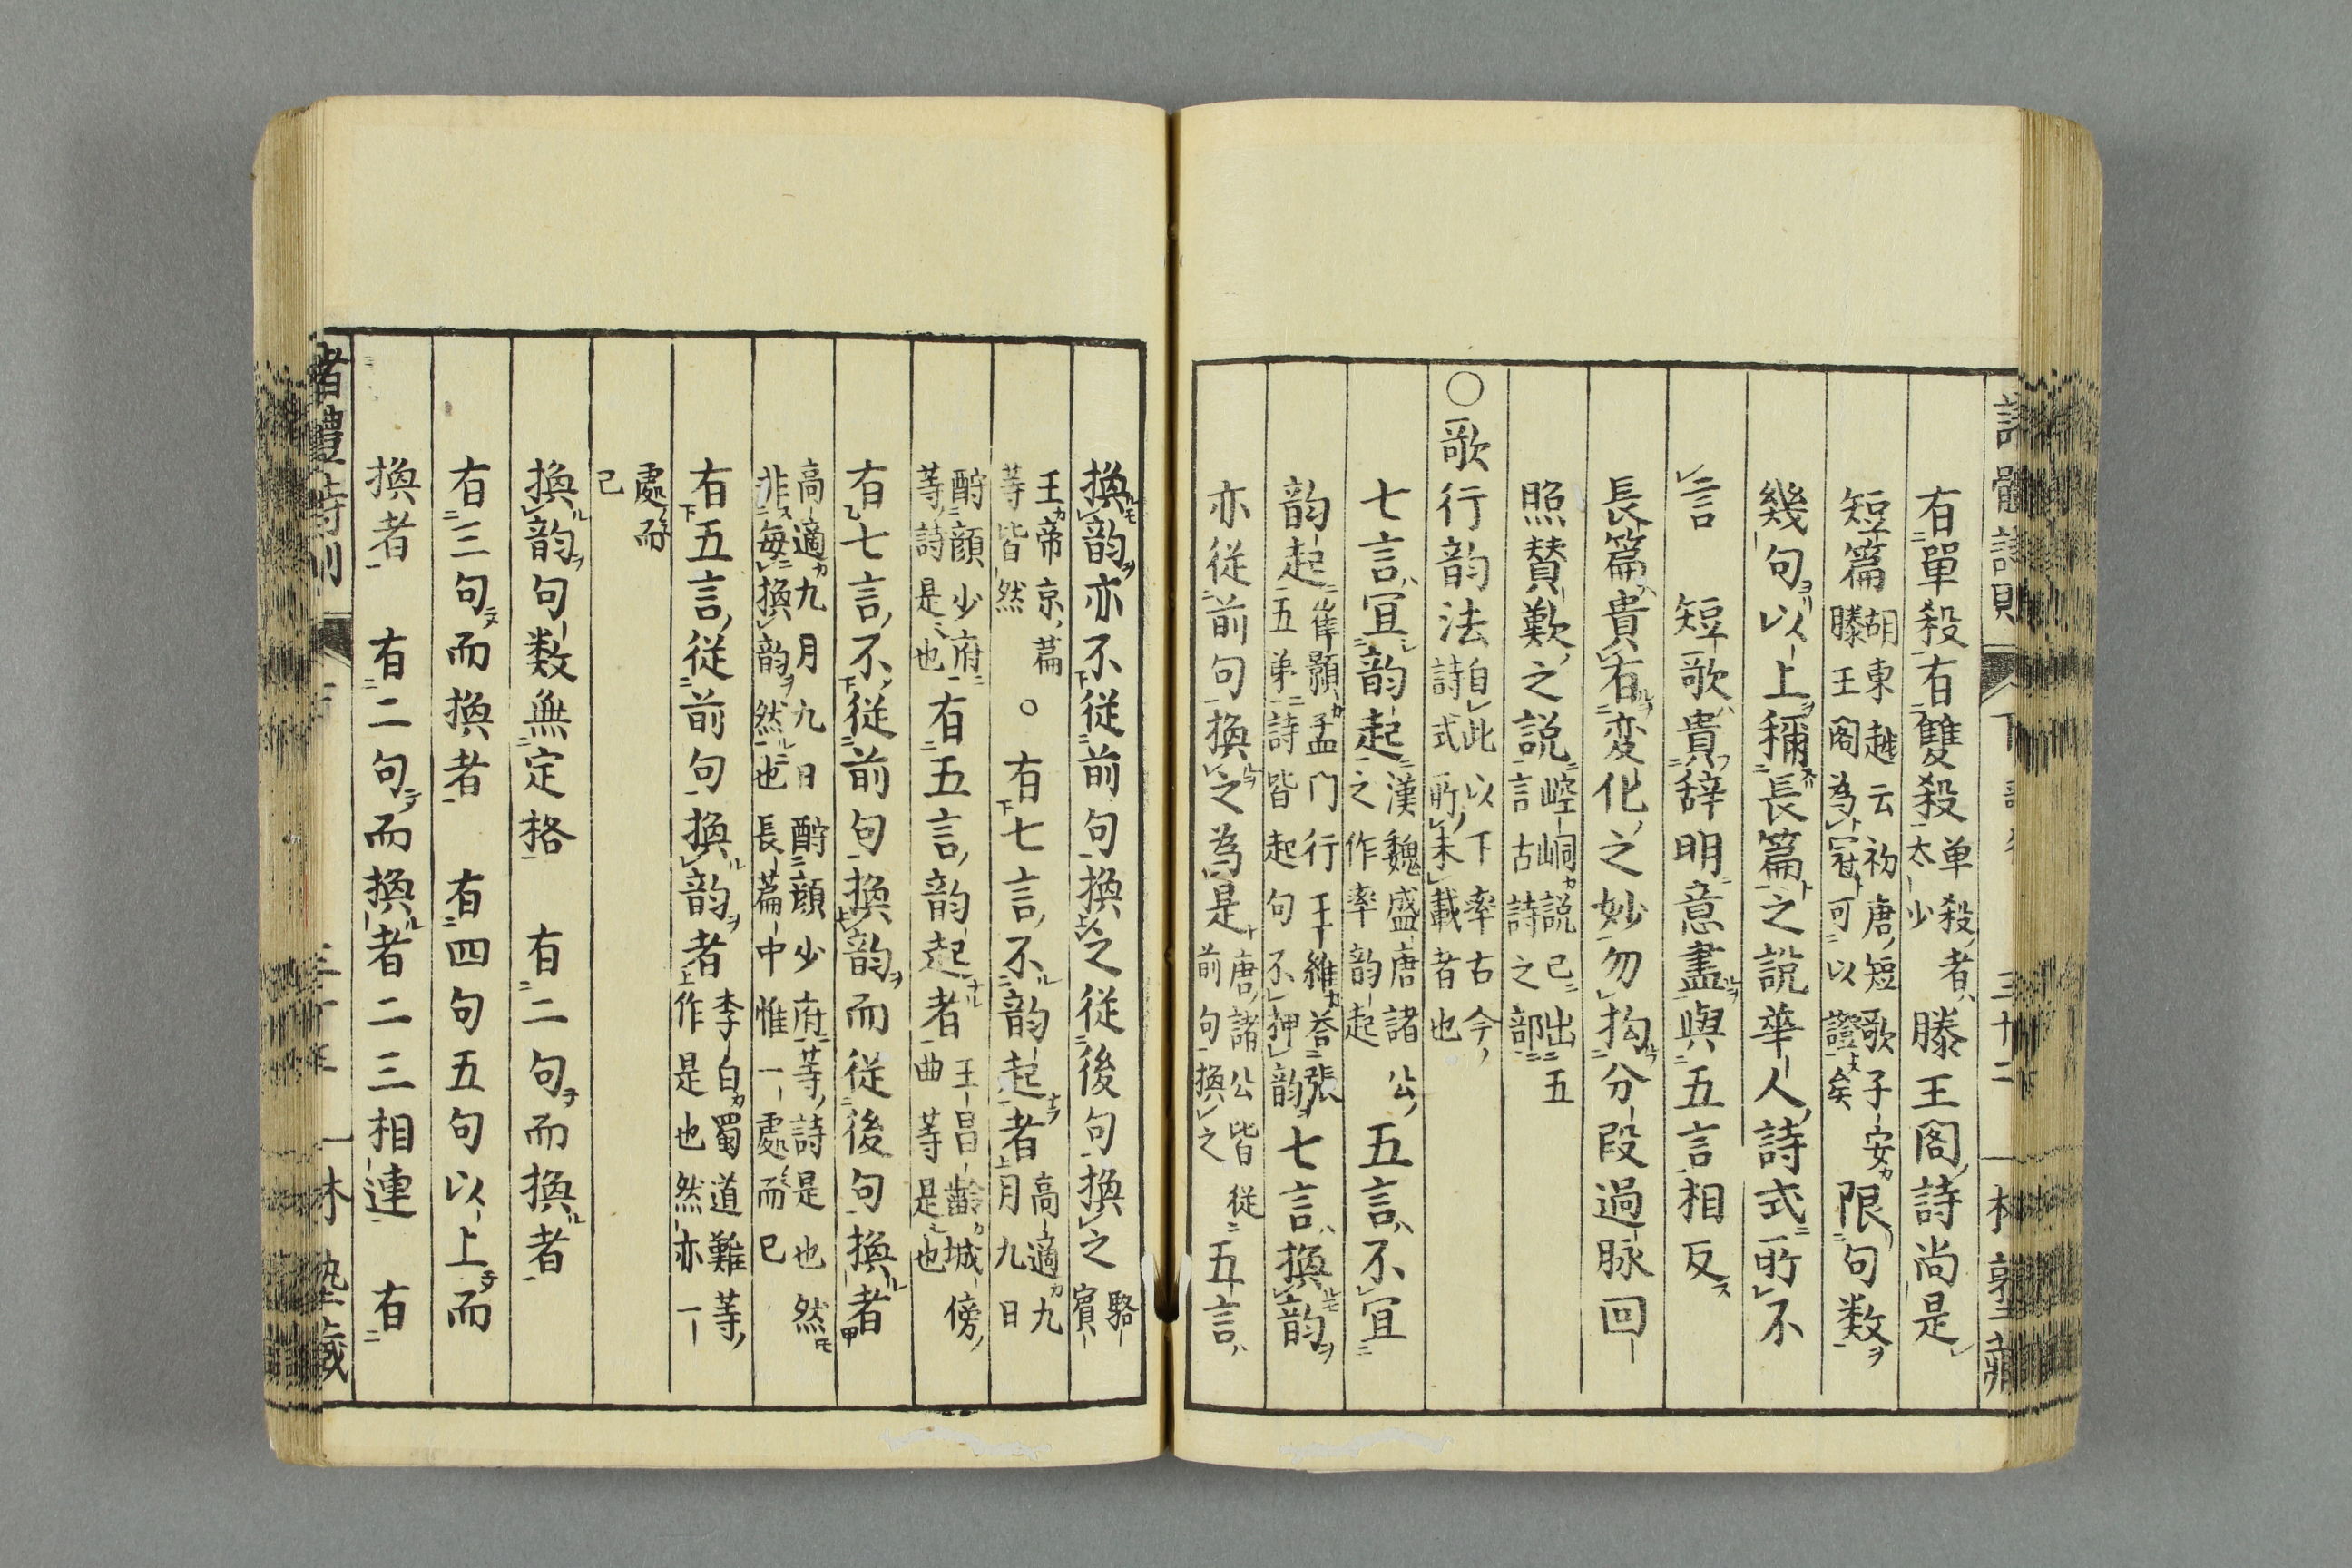 有單殺有雙殺単殺者太少滕王閣詩尚是
短篇胡東越云初唐短歌子安滕王閣為冠可以證矣限句数
幾句以上稱長篇之說華人詩式所不
言　短歌貴辞明意盡與五言相反
長篇貴有変化之妙勿拘分段過脉回
照賛歎之説崆峒説已出五言古詩之部
○歌行韵法自此以下率古今詩式所未載者也
七言宜韵起漢魏盛唐諸公之作率韵起五言不宜
韵起崔顥孟门行王維荅張五弟詩皆起句不押韵七言換韵
亦従前句換之為是唐諸公皆従前句換之五言
換韵亦不従前句換之従後句換之駱賓
王帝京篇等皆然○有七言不韵起者高適九月九日
酧顔少府等詩是也有五言韵起者王昌齡城傍曲等是也
有七言不従前句換韵而従後句換者
高適九月九日酧顔少府等詩是也然非毎換韵然也長篇中惟一處而已
有五言従前句換韵者李白蜀道難等作是也然亦一
處而已
換韵句数無定格　有二句而換者
有三句而換者　有四句五句以上而
換者　有二句而換者二三相連　有